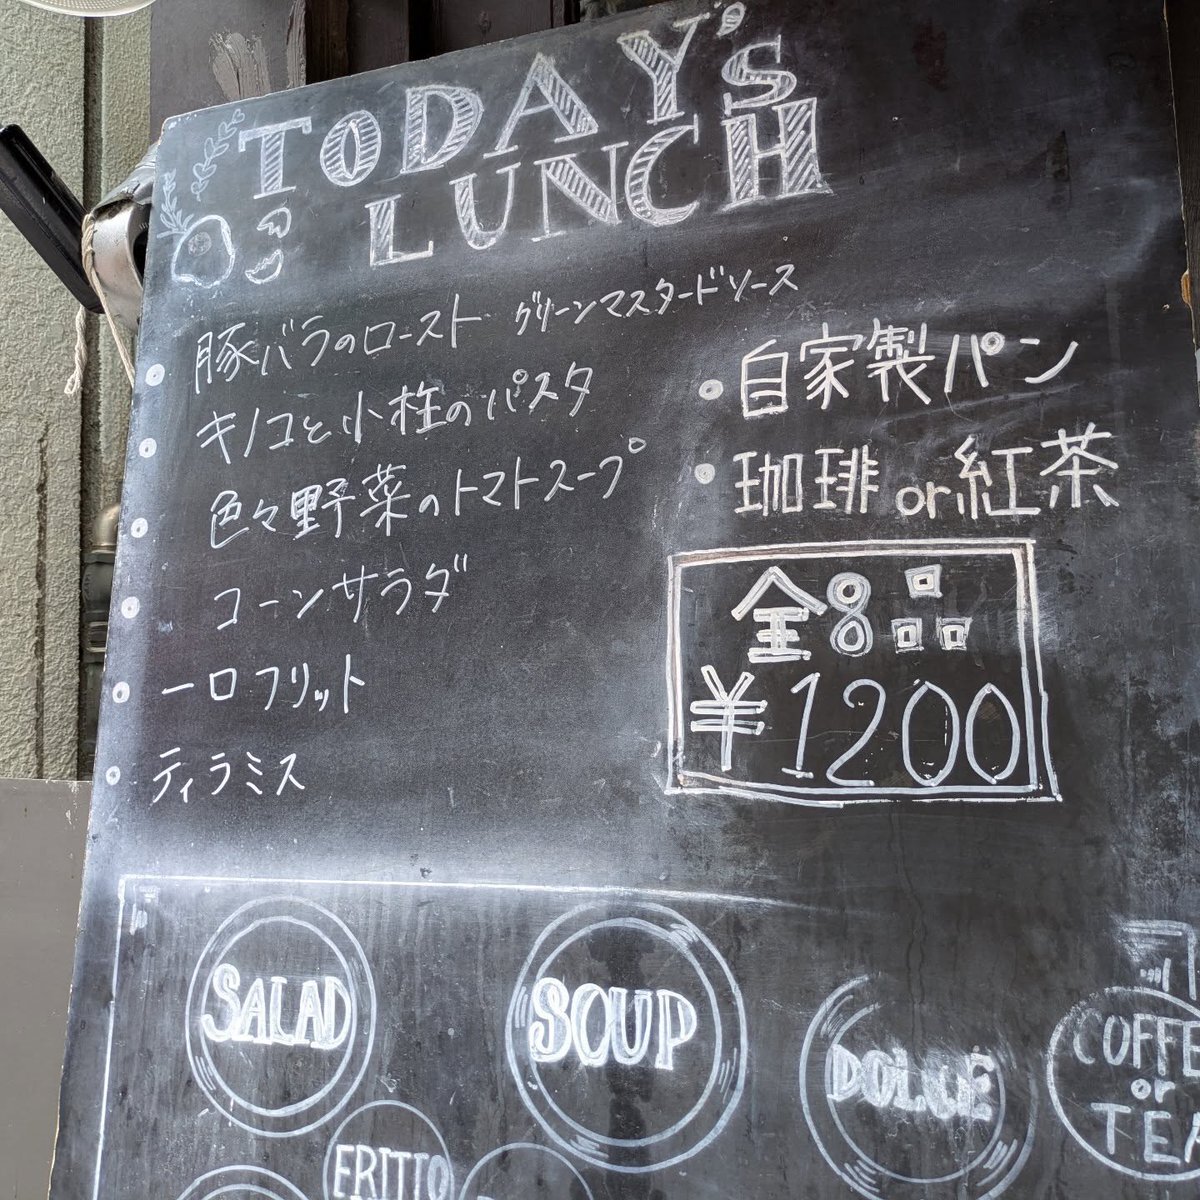 TODAY's
LUNCH
豚バラのロースト グリーンマスタードソース
キノコと小柱のパスタ
色々野菜のトマトスープ
コーンサラダ
一口フリット
ティラミス
自家製パン
珈琲or紅茶
全8品
¥1200
SALAD
SOUP
DOLCE
COFFEE
or
TEA
FRITTO